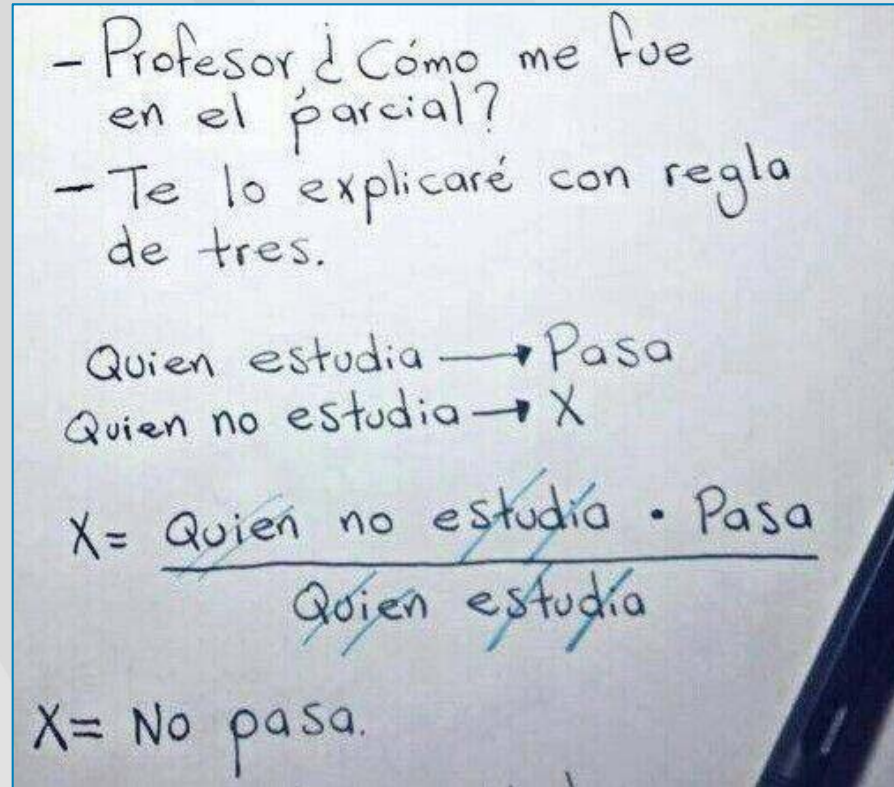 - Profesor ¿Cómo me fue
en el parcial?
- Te lo explicaré con regla
de tres.
Quien estudia → Pasa
Quien no estudia → X
X= Quien no estudia · Pasa
Quien estudia
X= No pasa.